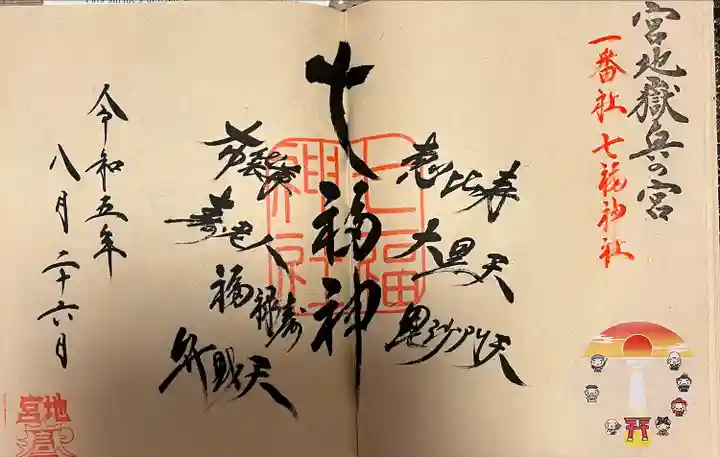 宮地嶽 奥の宮
一番社 七福神社
七福神
恵比寿
大黒天
毘沙門天
布袋尊
寿老人
福禄寿
弁財天
七福
神社
令和五年
八月二十六月
宮地